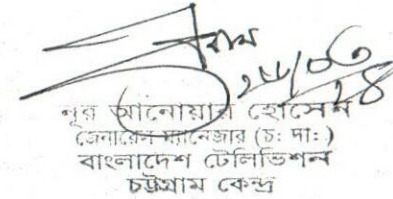 নূর আনোয়ার হোসেন
জেনারেল ম্যানেজার (চ: দা:)
বাংলাদেশ টেলিভিশন
চট্টগ্রাম কেন্দ্র